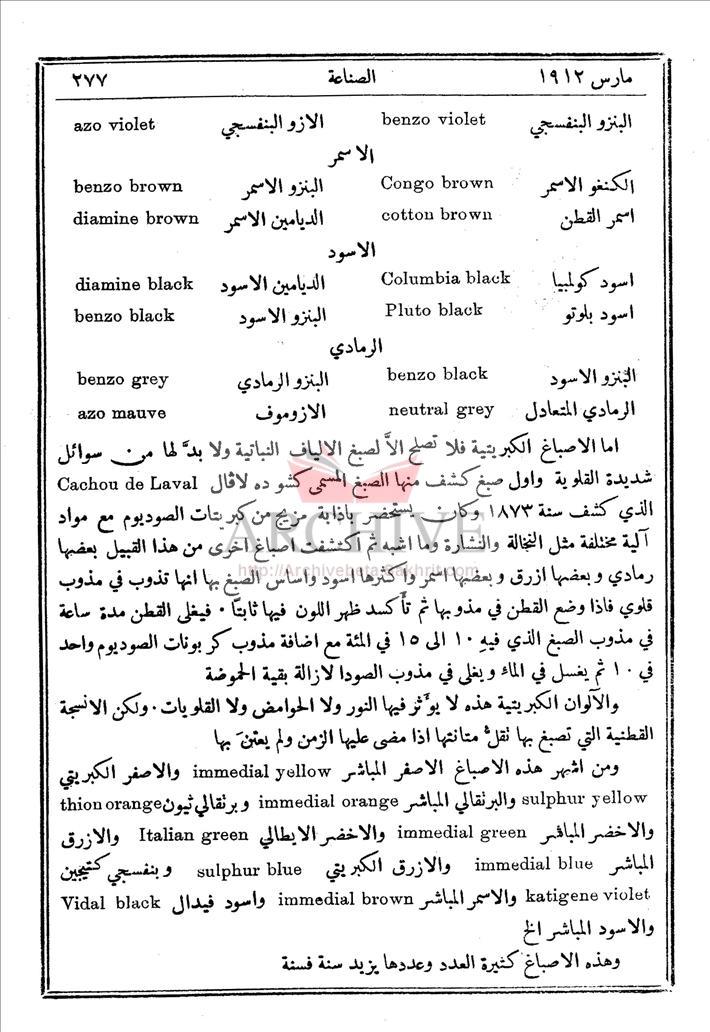 مارس ١٩١٢ الصناعة ٢٧٧
البنزو البنفسجي benzo violet الازو البنفسجي azo violet
الاسمر
الكنغو الاسمر Congo brown البنزو الاسمر benzo brown
اسمر القطن cotton brown الديامين الاسمر diamine brown
الاسود
اسود كولمبيا Columbia black الديامين الاسود diamine black
اسود بلوتو Pluto black البنزو الاسود benzo black
الرمادي
البنزو الاسود benzo black البنزو الرمادي benzo grey
الرمادي المتعادل neutral grey الازوموف azo mauve
اما الاصباغ الكبريتية فلا تصلح الاَّ لصبغ الالياف النباتية ولا بدَّ لها من سوائل
شديدة القلوية واول صبغ كشف منها الصبغ المسمى كشو ده لاڤال Cachou de Laval
الذي كشف سنة ١٨٧٣ وكان يستحضر باذابة مزيج من كبريتات الصوديوم مع مواد
آلية مختلفة مثل النخالة والنشارة وما اشبه ثم اكتشفت اصباغ اخرى من هذا القبيل بعضها
رمادي وبعضها ازرق وبعضها اسمر واكثرها اسود واساس الصبغ بها انها تذوب في مذوب
قلوي فاذا وضع القطن في مذوبها ثم تأكسد ظهر اللون فيها ثابتًا . فيغلى القطن مدة ساعة
في مذوب الصبغ الذي فيهِ ١٠ الى ١٥ في المئة مع اضافة مذوب كربونات الصوديوم واحد
في ١٠ ثم يغسل في الماء ويغلى في مذوب الصودا لازالة بقية الحموضة
والألوان الكبريتية هذه لا يوٴثر فيها النور ولا الحوامض ولا القلويات . ولكن الانسجة
القطنية التي تصبغ بها تقلُّ متانتها اذا مضى عليها الزمن ولم يعتنَ بها
ومن اشهر هذه الاصباغ الاصفر المباشر immedial yellow والاصفر الكبريتي
sulphur yellow والبرتقالي المباشر immedial orange وبرتقالي ثيون thion orange
والاخضر المباشر immedial green والاخضر الايطالي Italian green والازرق
المباشر immedial blue والازرق الكبريتي sulphur blue وبنفسجي كتيجين
katigene violet والاسمر المباشر immedial brown واسود فيدال Vidal black
والاسود المباشر الخ
وهذه الاصباغ كثيرة العدد وعددها يزيد سنة فسنة
ARCHIVE
http://Archivebeta.Sakhrit.com